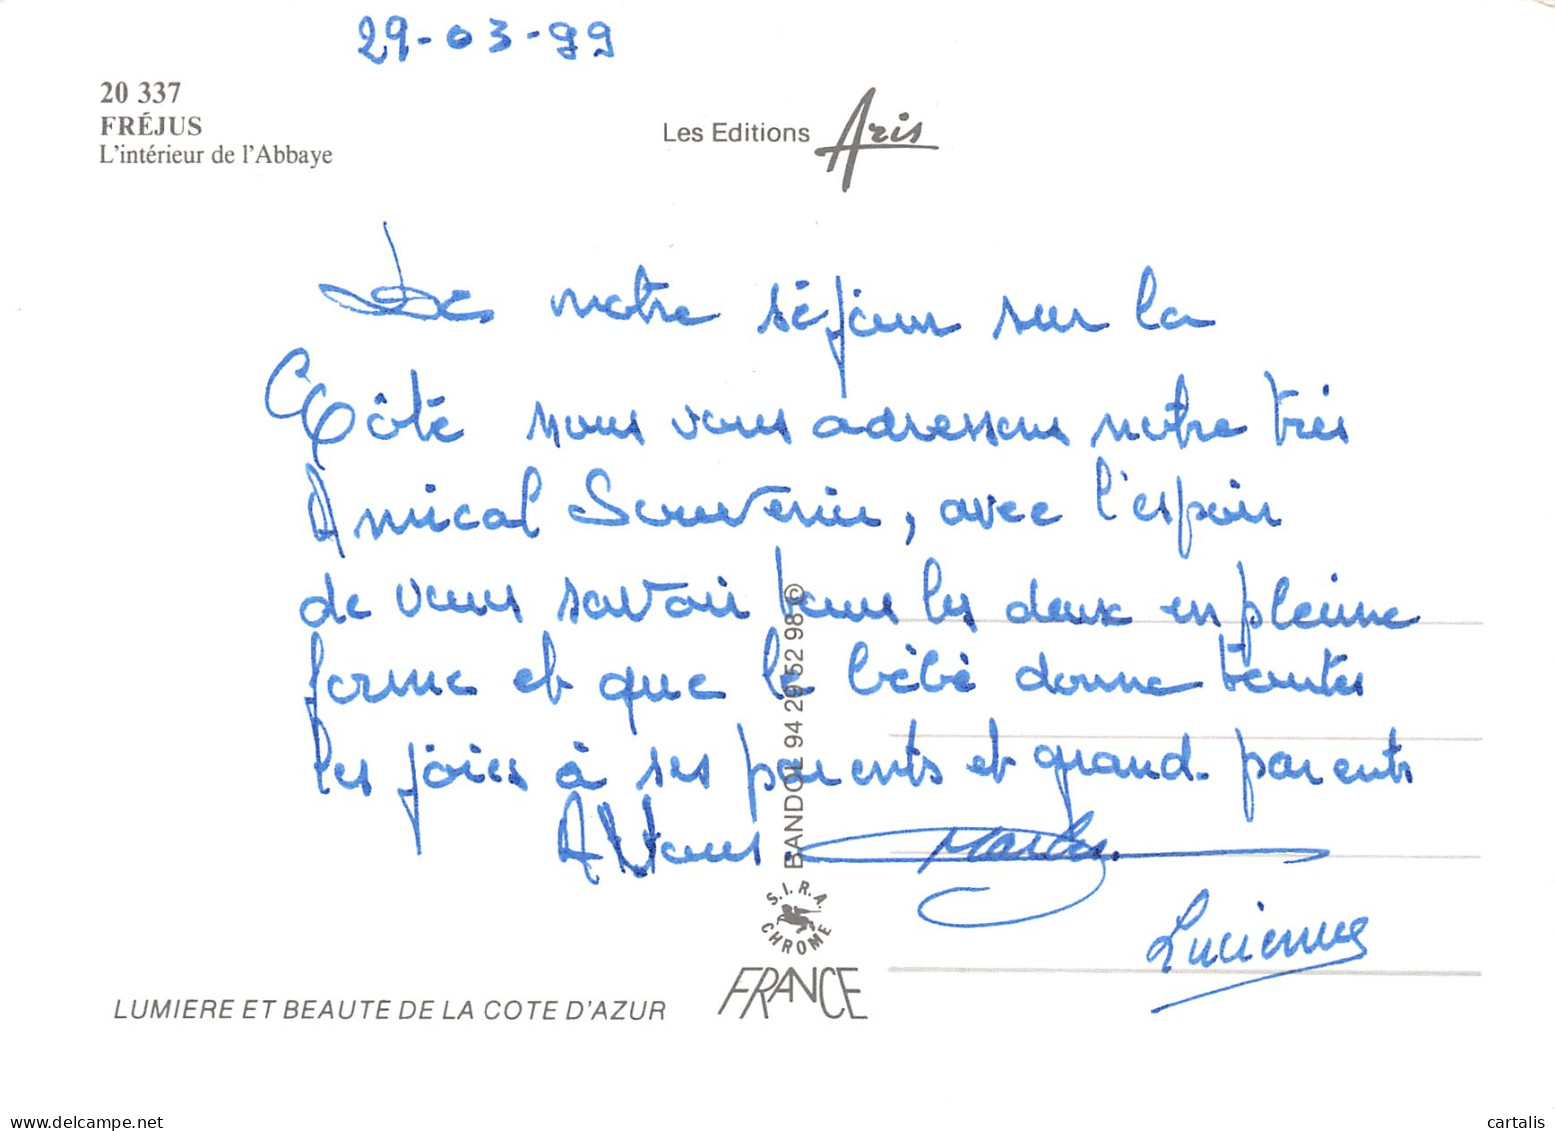 29-03-99
20 337
FRÉJUS
L'intérieur de l'Abbaye
Les Editions Aris
De notre séjour sur la
Côte nous vous adressons notre très
Amical Souvenir, avec l'espoir
de vous savoir tous les deux en pleine
forme et que le bébé donne toutes
les joies à ses parents et grand-parents
A Vous
Lucienne
BANDOL 94 29 52 98 ©
S.I.R.A.
CHROME
FRANCE
LUMIERE ET BEAUTE DE LA COTE D'AZUR
www.delcampe.net
cartalis